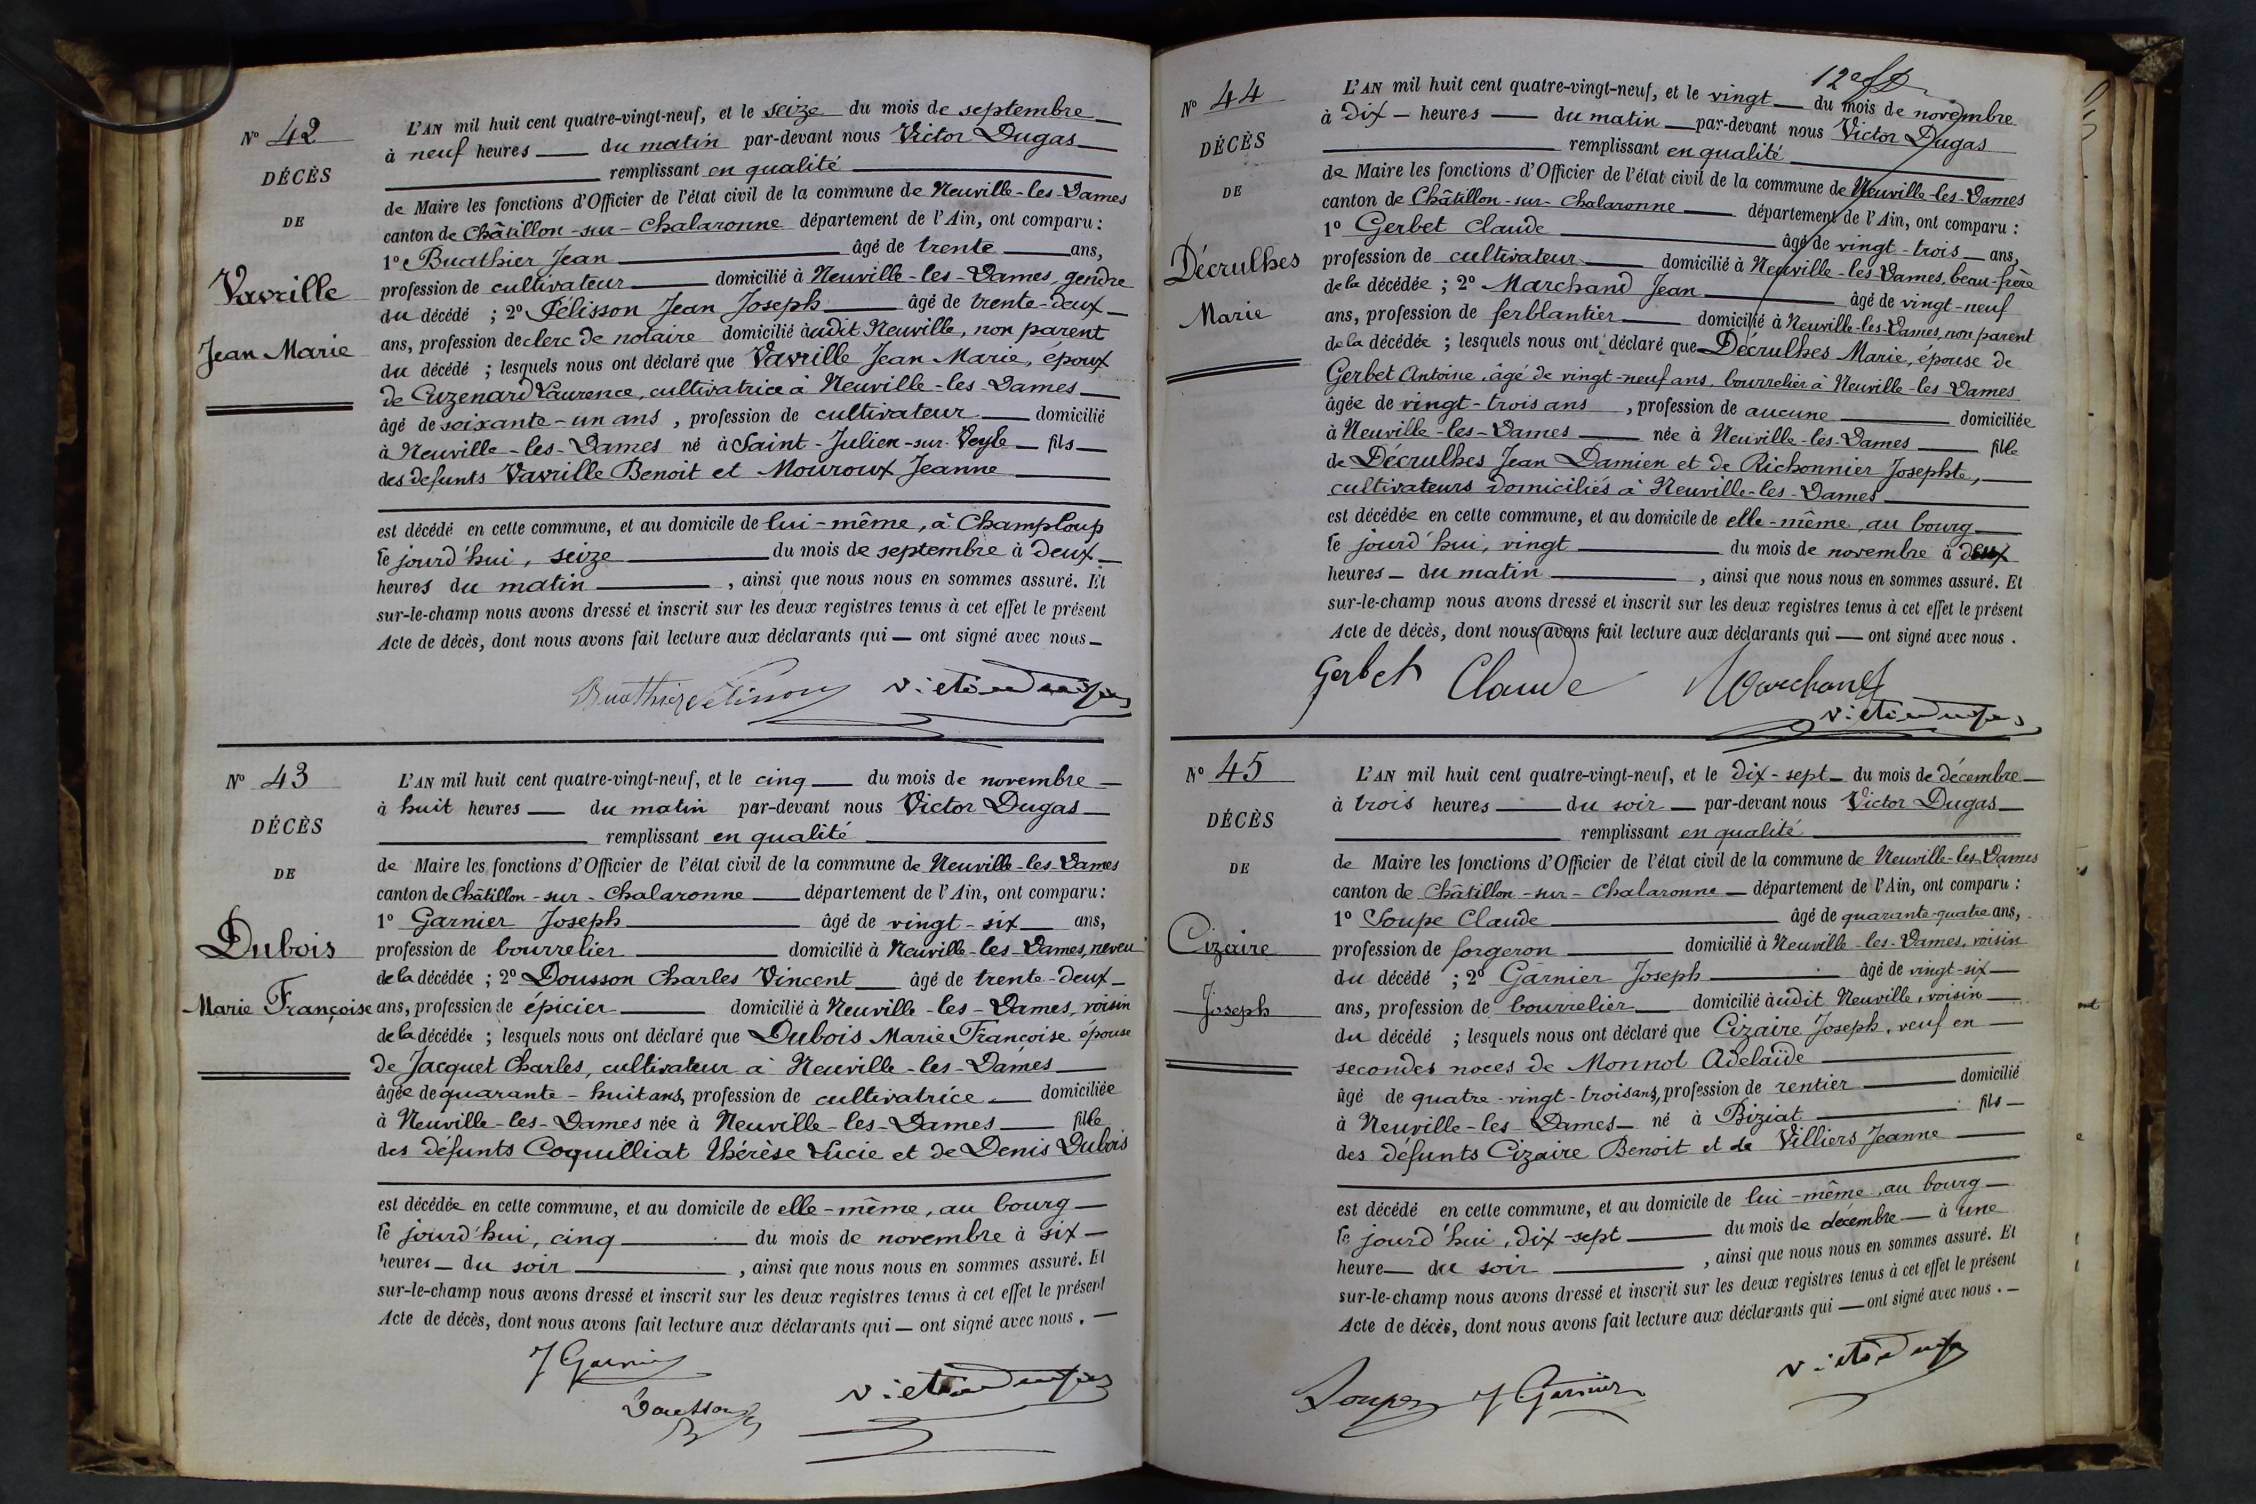 N° 42
DÉCÈS
DE
Vavrille
Jean Marie
L'AN mil huit cent quatre-vingt-neuf, et le seize du mois de septembre
à neuf heures du matin par-devant nous Victor Dugas
remplissant en qualité
de Maire les fonctions d'Officier de l'état civil de la commune de Neuville-les-Dames
canton de Châtillon-sur-Chalaronne département de l'Ain, ont comparu :
1° Buathier Jean âgé de trente ans,
profession de cultivateur domicilié à Neuville-les-Dames, gendre
du décédé ; 2° Pélisson Jean Joseph âgé de trente-deux
ans, profession de clerc de notaire domicilié à udit Neuville, non parent
du décédé ; lesquels nous ont déclaré que Vavrille Jean Marie, époux
de Cuzenard Laurence, cultivatrice à Neuville-les-Dames
âgé de soixante-un ans, profession de cultivateur domicilié
à Neuville-les-Dames né à Saint-Julien-sur-Veyle fils
des defunts Vavrille Benoit et Mouroux Jeanne
est décédé en cette commune, et au domicile de lui-même, à Champloup
le jourd'hui, seize du mois de septembre à deux
heures du matin, ainsi que nous nous en sommes assuré. Et
sur-le-champ nous avons dressé et inscrit sur les deux registres tenus à cet effet le présent
Acte de décès, dont nous avons fait lecture aux déclarants qui — ont signé avec nous
Buathier Pélisson Victor Dugas
N° 43
DÉCÈS
DE
Dubois
Marie Françoise
L'AN mil huit cent quatre-vingt-neuf, et le cinq du mois de novembre
à huit heures du matin par-devant nous Victor Dugas
remplissant en qualité
de Maire les fonctions d'Officier de l'état civil de la commune de Neuville-les-Dames
canton de Châtillon-sur-Chalaronne département de l'Ain, ont comparu :
1° Garnier Joseph âgé de vingt-six ans,
profession de bourrelier domicilié à Neuville-les-Dames, neveu
de la décédée ; 2° Dousson Charles Vincent âgé de trente-deux
ans, profession de épicier domicilié à Neuville-les-Dames, voisin
de la décédée ; lesquels nous ont déclaré que Dubois Marie Françoise épouse
de Jacquet Charles, cultivateur à Neuville-les-Dames
âgée de quarante-huit ans, profession de cultivatrice domiciliée
à Neuville-les-Dames née à Neuville-les-Dames fille
des défunts Coquilliat Thérèse Lucie et de Denis Dubois
est décédée en cette commune, et au domicile de elle-même, au bourg
le jourd'hui, cinq du mois de novembre à six
heures du soir, ainsi que nous nous en sommes assuré. Et
sur-le-champ nous avons dressé et inscrit sur les deux registres tenus à cet effet le présent
Acte de décès, dont nous avons fait lecture aux déclarants qui — ont signé avec nous.
J Garnier
Dousson
Victor Dugas
N° 44
DÉCÈS
DE
Décrulhes
Marie
L'AN mil huit cent quatre-vingt-neuf, et le vingt du mois de novembre
à dix heures du matin par-devant nous Victor Dugas
remplissant en qualité
de Maire les fonctions d'Officier de l'état civil de la commune de Neuville-les-Dames
canton de Châtillon-sur-Chalaronne département de l'Ain, ont comparu :
1° Gerbet Claude âgé de vingt-trois ans,
profession de cultivateur domicilié à Neuville-les-Dames, beau-frère
de la décédée ; 2° Marchand Jean âgé de vingt-neuf
ans, profession de ferblantier domicilié à Neuville-les-Dames, non parent
de la décédée ; lesquels nous ont déclaré que Décrulhes Marie, épouse de
Gerbet Antoine, âgé de vingt-neuf ans, bourrelier à Neuville-les-Dames
âgée de vingt-trois ans, profession de aucune domiciliée
à Neuville-les-Dames née à Neuville-les-Dames fille
de Décrulhes Jean Damien et de Richonnier Josephte,
cultivateurs domiciliés à Neuville-les-Dames
est décédée en cette commune, et au domicile de elle-même, au bourg
le jourd'hui, vingt du mois de novembre à deux
heures du matin, ainsi que nous nous en sommes assuré. Et
sur-le-champ nous avons dressé et inscrit sur les deux registres tenus à cet effet le présent
Acte de décès, dont nous avons fait lecture aux déclarants qui — ont signé avec nous.
Gerbet Claude Marchand
Victor Dugas
N° 45
DÉCÈS
DE
Cizaire
Joseph
L'AN mil huit cent quatre-vingt-neuf, et le dix-sept du mois de décembre
à trois heures du soir par-devant nous Victor Dugas
remplissant en qualité
de Maire les fonctions d'Officier de l'état civil de la commune de Neuville-les-Dames
canton de Châtillon-sur-Chalaronne département de l'Ain, ont comparu :
1° Soupe Claude âgé de quarante-quatre ans,
profession de forgeron domicilié à Neuville-les-Dames, voisin
du décédé ; 2° Garnier Joseph âgé de vingt-six
ans, profession de bourrelier domicilié à udit Neuville, voisin
du décédé ; lesquels nous ont déclaré que Cizaire Joseph, veuf en
secondes noces de Monnot Adelaïde
âgé de quatre-vingt-trois ans, profession de rentier domicilié
à Neuville-les-Dames né à Biziat fils
des défunts Cizaire Benoit et de Villiers Jeanne
est décédé en cette commune, et au domicile de lui-même, au bourg
le jourd'hui, dix-sept du mois de décembre à une
heure du soir, ainsi que nous nous en sommes assuré. Et
sur-le-champ nous avons dressé et inscrit sur les deux registres tenus à cet effet le présent
Acte de décès, dont nous avons fait lecture aux déclarants qui — ont signé avec nous.
Soupe J Garnier Victor Dugas